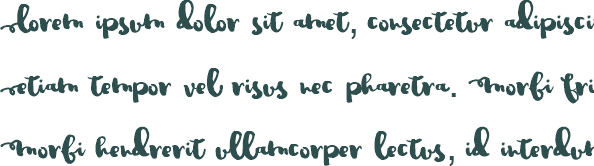 lorem ipsum dolor sit amet, consectetur adipisci
etiam tempor vel risus nec pharetra. morbi fri
morbi hendrerit ullamcorper lectus, id interdum